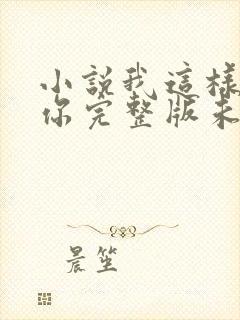 小說我這樣
你完整版未
晨笙